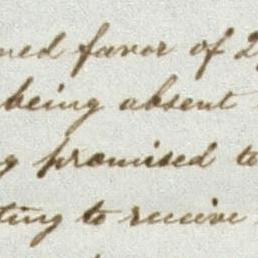 med favor of 2
being absent
g promised to
ting to receive